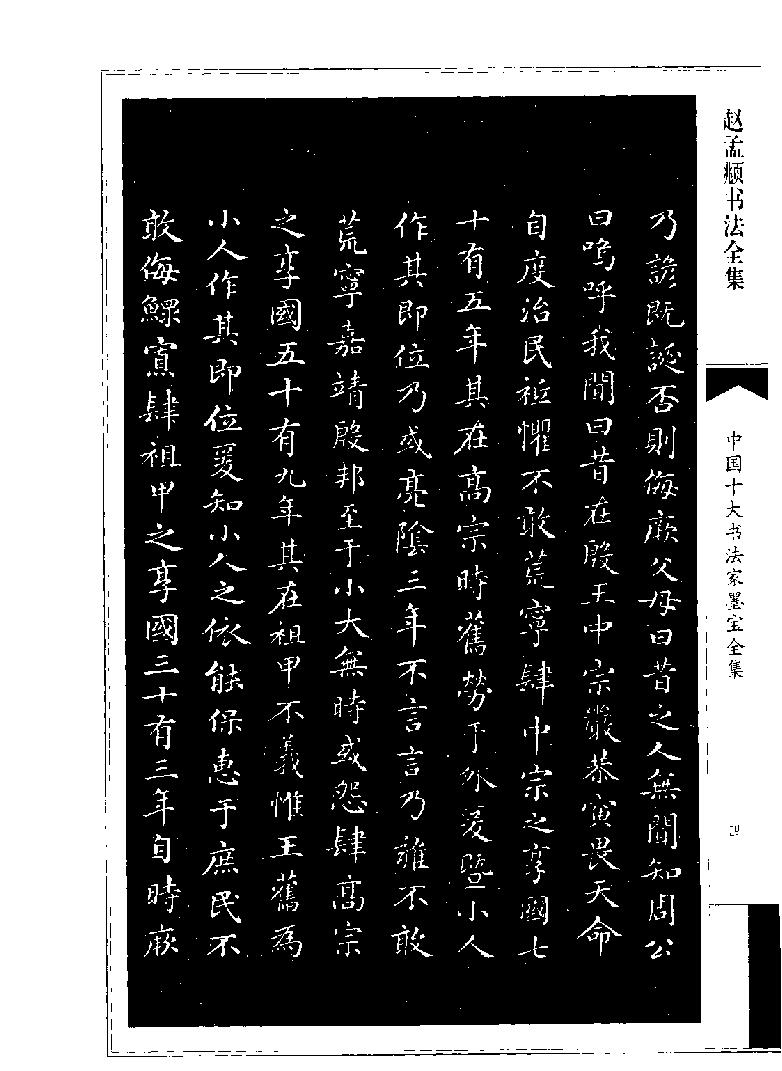 赵孟頫书法全集
中国十大书法家墨宝全集
四
乃諺既誕否則侮厥父母曰昔之人無聞知周公
曰嗚呼我聞曰昔在殷王中宗嚴恭寅畏天命
自度治民祗懼不敢荒寧肆中宗之享國七
十有五年其在高宗時舊勞于外爰暨小人
作其即位乃或亮陰三年不言言乃雍不敢
荒寧嘉靖殷邦至于小大無時或怨肆高宗
之享國五十有九年其在祖甲不義惟王舊為
小人作其即位爰知小人之依能保惠于庶民不
敢侮鰥寡肆祖甲之享國三十有三年自時厥